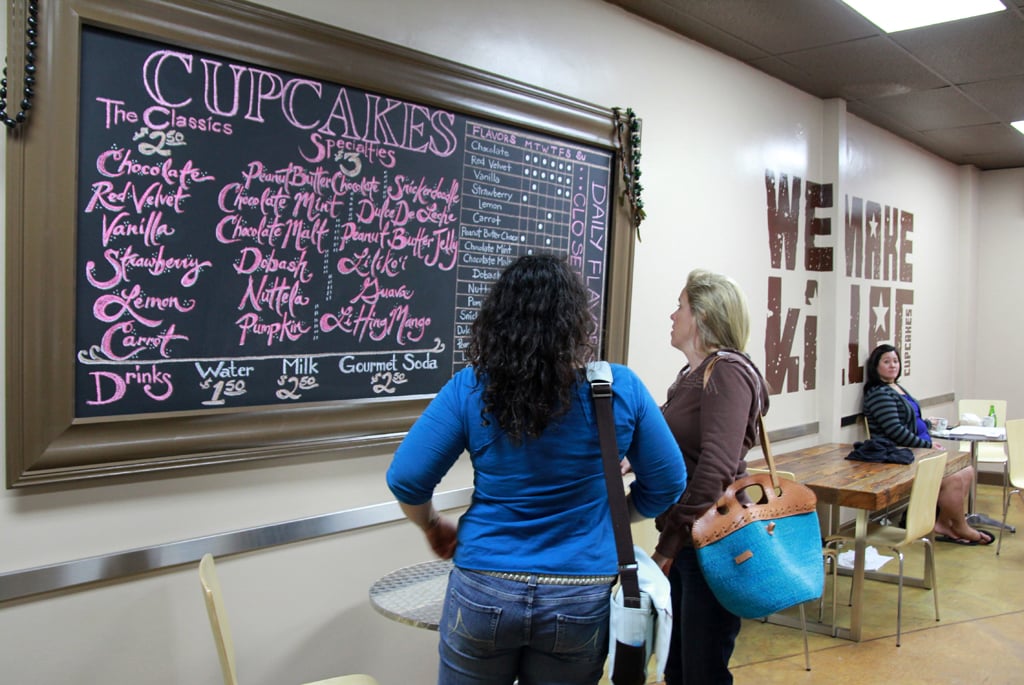 CUPCAKES
The Classics
$2.50
Chocolate
Red Velvet
Vanilla
Strawberry
Lemon
Carrot
Specialties
$3
Peanut Butter Chocolate
Chocolate Mint
Chocolate Malt
Dobash
Nuttela
Pumpkin
Snickerdoodle
Dulce De Leche
Peanut Butter Jelly
Liliko'i
Guava
Li Hing Mango
Drinks
Water
$1.50
Milk
$2.50
Gourmet Soda
$2.50
FLAVORS M T W T F S SU
Chocolate
Red Velvet
Vanilla
Strawberry
Lemon
Carrot
Peanut Butter Choco
Chocolate Mint
Chocolate
Dobash
CLOSED
DAILY FLAVORS
WE MAKE
KILLER
CUPCAKES